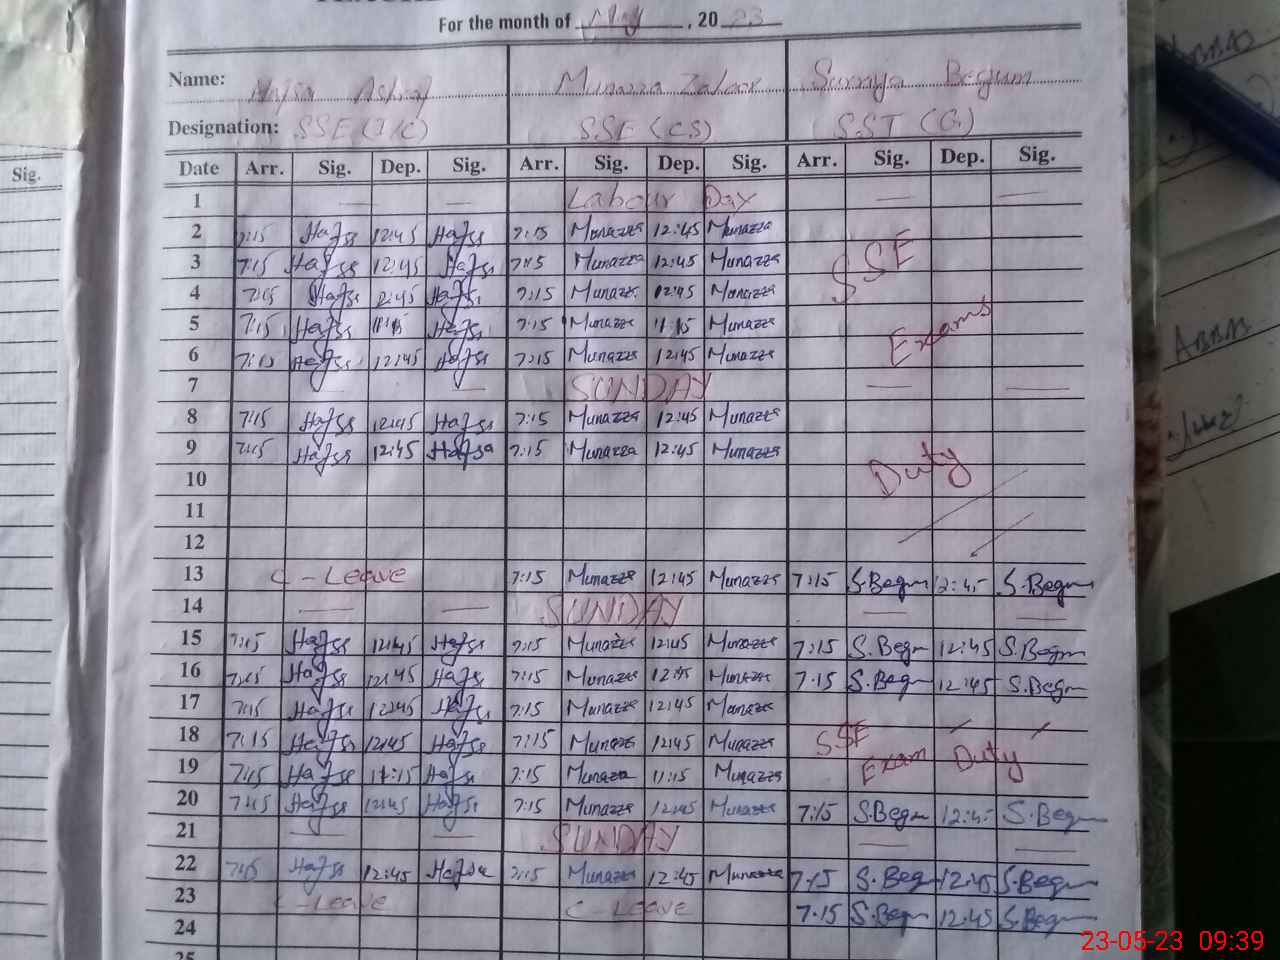 For the month of May, 20 23
Name: Hafsa Ashraf Munazza Zahoor Surayya Begum
Designation: SSE (I/C) SSE (CS) SST (G.)
Sig. Date Arr. Sig. Dep. Sig. Arr. Sig. Dep. Sig. Arr. Sig. Dep. Sig.
1 — — Labour Day — —
2 7:15 Hafsa 12:45 Hafsa 7:15 Munazza 12:45 Munazza
3 7:15 Hafsa 12:45 Hafsa 7:15 Munazza 12:45 Munazza SSE
4 7:15 Hafsa 12:45 Hafsa 7:15 Munazza 12:45 Munazza
5 7:15 Hafsa 11:15 Hafsa 7:15 Munazza 11:15 Munazza Exams
6 7:15 Hafsa 12:45 Hafsa 7:15 Munazza 12:45 Munazza
7 — SUNDAY — —
8 7:15 Hafsa 12:45 Hafsa 7:15 Munazza 12:45 Munazza
9 7:15 Hafsa 12:45 Hafsa 7:15 Munazza 12:45 Munazza
10 Duty
11
12
13 C-Leave 7:15 Munazza 12:45 Munazza 7:15 S.Begum 12:45 S.Begum
14 — — SUNDAY — —
15 7:15 Hafsa 12:45 Hafsa 7:15 Munazza 12:45 Munazza 7:15 S.Begum 12:45 S.Begum
16 7:15 Hafsa 12:45 Hafsa 7:15 Munazza 12:45 Munazza 7:15 S.Begum 12:45 S.Begum
17 7:15 Hafsa 12:45 Hafsa 7:15 Munazza 12:45 Munazza
18 7:15 Hafsa 12:45 Hafsa 7:15 Munazza 12:45 Munazza SSE
19 7:15 Hafsa 11:15 Hafsa 7:15 Munazza 11:15 Munazza Exam Duty
20 7:15 Hafsa 12:45 Hafsa 7:15 Munazza 12:45 Munazza 7:15 S.Begum 12:45 S.Begum
21 — — SUNDAY — —
22 7:15 Hafsa 12:45 Hafsa 7:15 Munazza 12:45 Munazza 7:15 S.Begum 12:45 S.Begum
23 C-Leave C-Leave 7:15 S.Begum 12:45 S.Begum
24
25
23-05-23 09:39